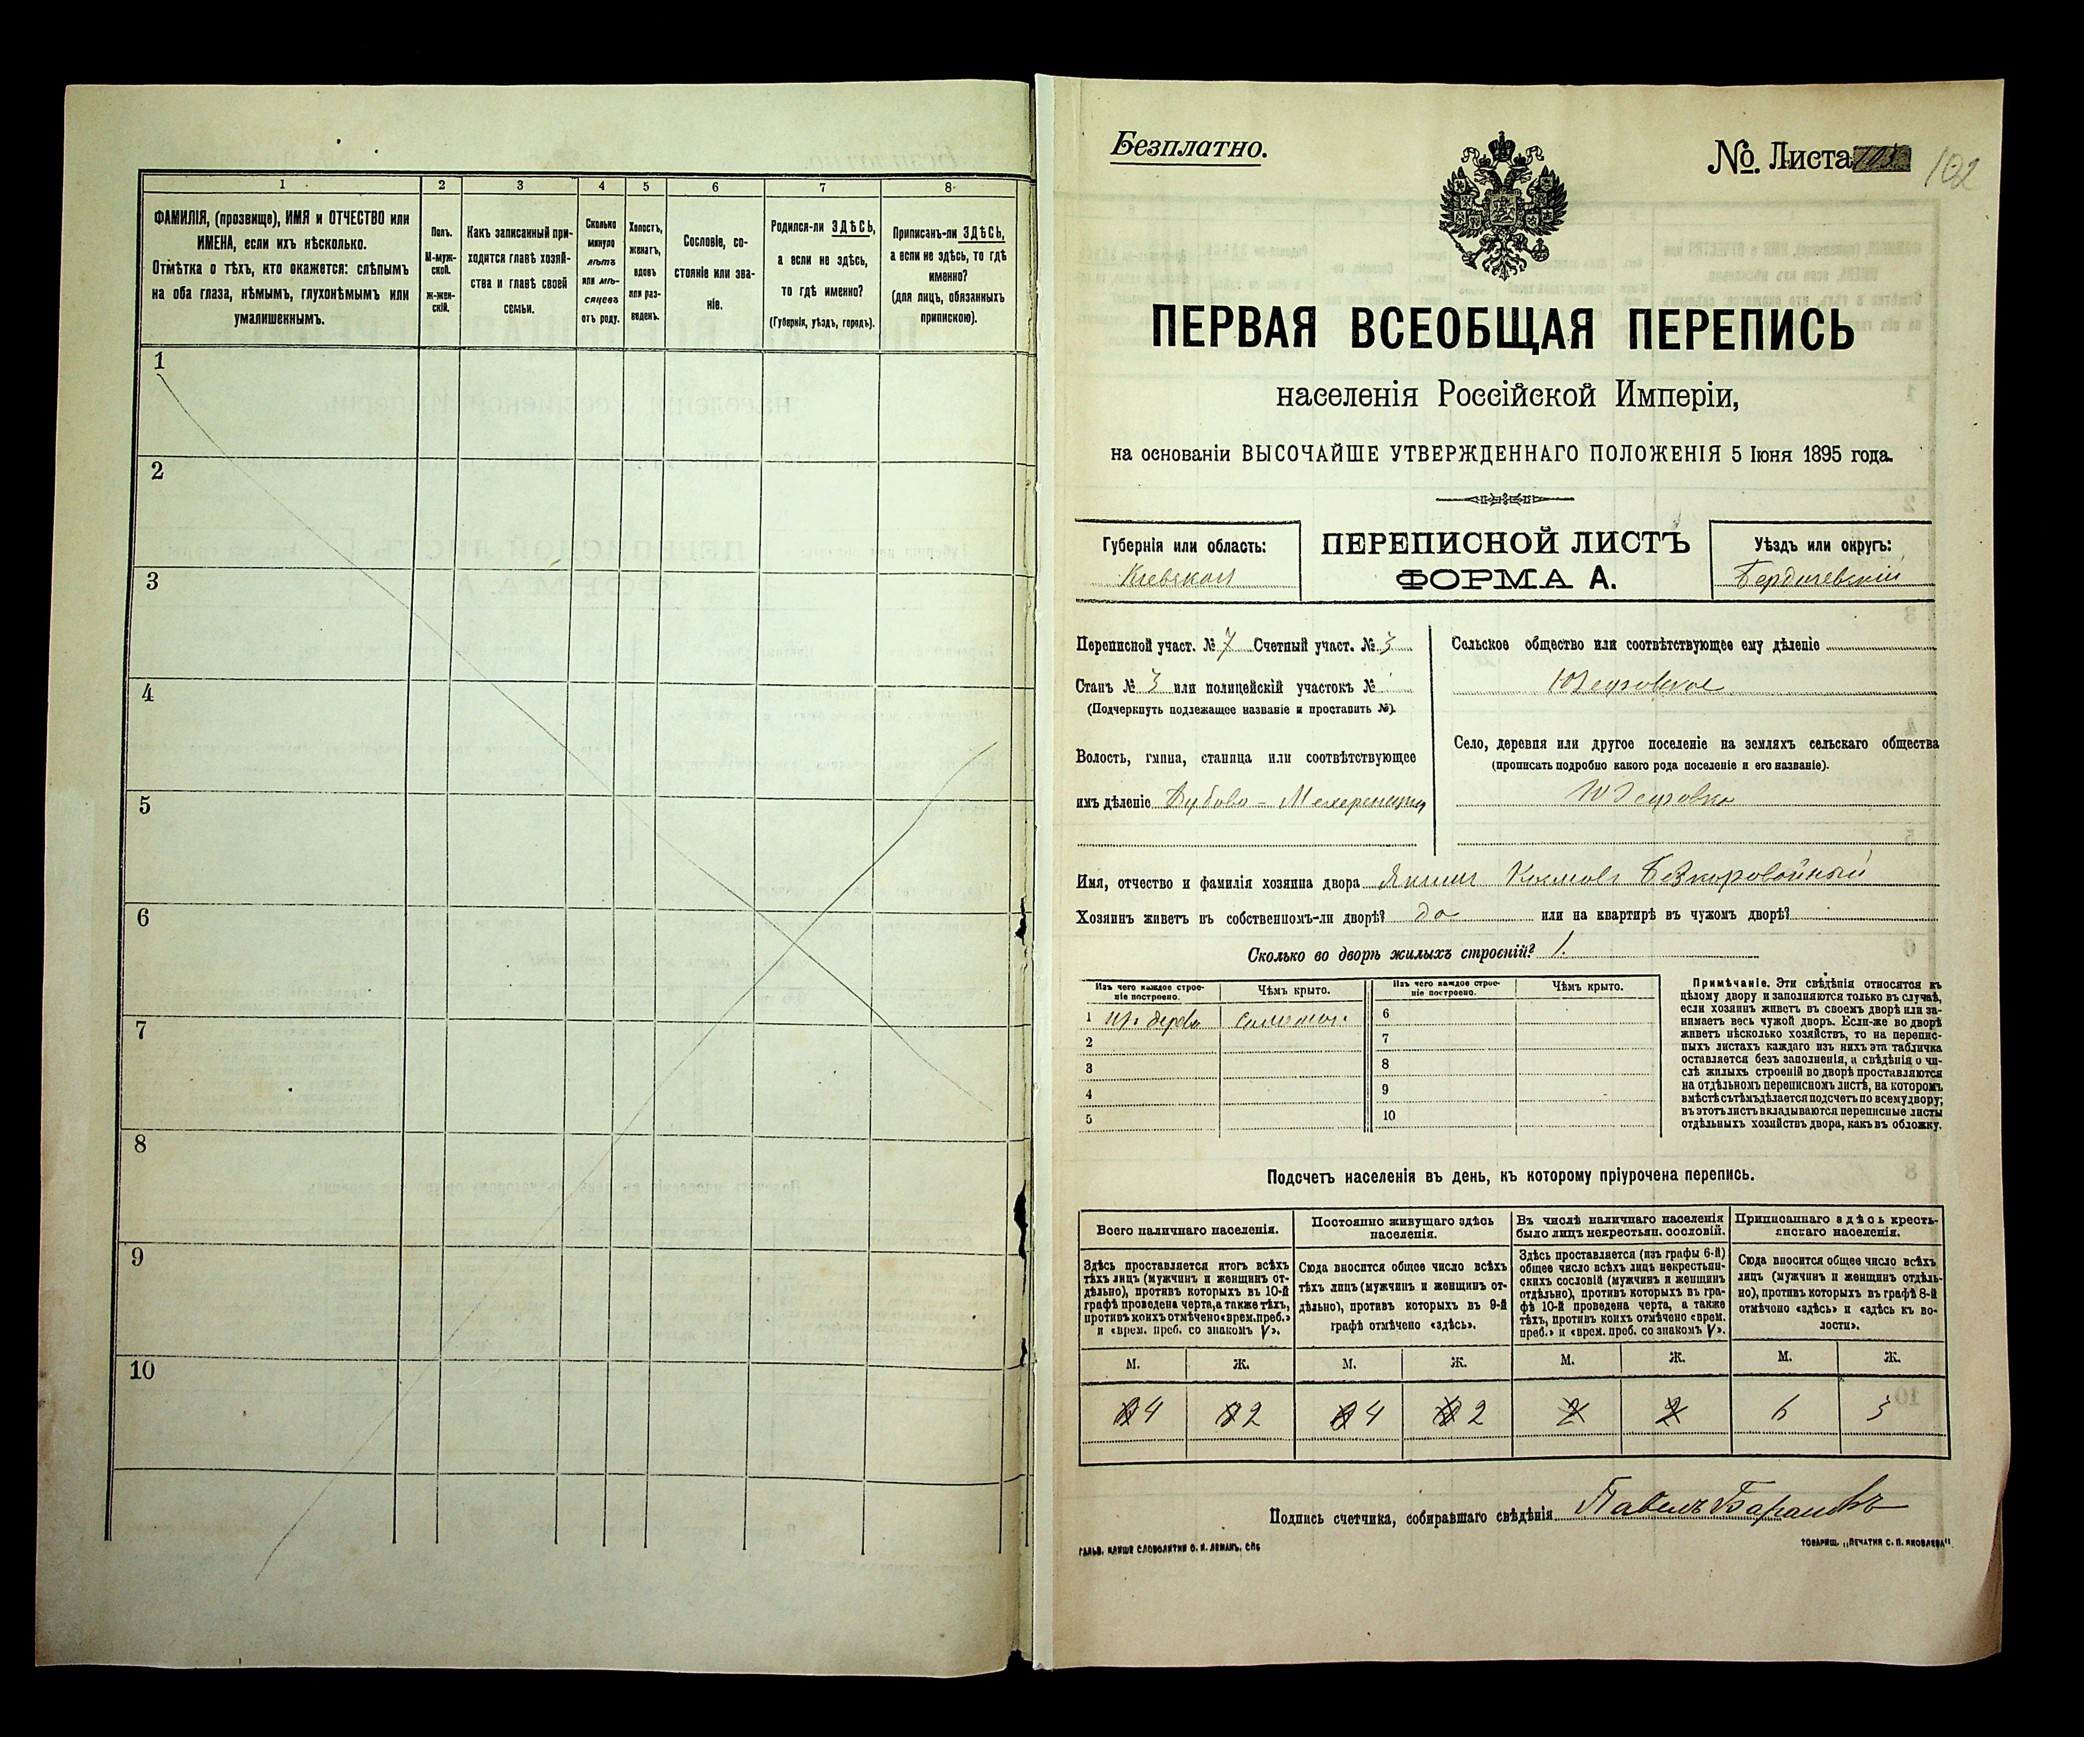 1
2
3
4
5
6
7
8
ФАМИЛІЯ, (прозвище), ИМЯ и ОТЧЕСТВО или
ИМЕНА, если ихъ нѣсколько.
Отмѣтка о тѣхъ, кто окажется: слѣпымъ
на оба глаза, нѣмымъ, глухонѣмымъ или
умалишеннымъ.
Полъ.
М-муж-
ской.
ж-жен-
скій.
Какъ записанный при-
ходится главѣ хозяй-
ства и главѣ своей
семьи.
Сколько
минуло
лѣтъ
или мѣ-
сяцевъ
отъ роду.
Холостъ,
женатъ,
вдовъ
или раз-
веденъ.
Сословіе, со-
стояніе или зва-
ніе.
Родился-ли ЗДѢСЬ,
а если не здѣсь,
то гдѣ именно?
(Губернія, уѣздъ, городъ).
Приписанъ-ли ЗДѢСЬ,
а если не здѣсь, то гдѣ
именно?
(для лицъ, обязанныхъ
припискою).
1
2
3
4
5
6
7
8
9
10
Безплатно.
№. Листа
102
ПЕРВАЯ ВСЕОБЩАЯ ПЕРЕПИСЬ
населенія Россійской Имперіи,
на основаніи ВЫСОЧАЙШЕ УТВЕРЖДЕННАГО ПОЛОЖЕНІЯ 5 Іюня 1895 года.
Губернія или область:
Кіевская
ПЕРЕПИСНОЙ ЛИСТЪ
ФОРМА А.
Уѣздъ или округъ:
Бердичевскій
Переписной участ. № 7 Счетный участ. № 3
Станъ № 3 или полицейскій участокъ №
(Подчеркнуть подлежащее названіе и проставить №).
Волость, гмина, станица или соотвѣтствующее
имъ дѣленіе Дубово-Мехеринская
Сельское общество или соотвѣтствующее ему дѣленіе
Юзефовское
Село, деревня или другое поселеніе на земляхъ сельскаго общества
(прописать подробно какого рода поселеніе и его названіе).
Юзефовка
Имя, отчество и фамилія хозяина двора Безкоровайный
Хозяинъ живетъ въ собственномъ-ли дворѣ? да или на квартирѣ въ чужомъ дворѣ?
Сколько во дворѣ жилыхъ строеній? 1.
Изъ чего каждое строе-
ніе построено.
Чѣмъ крыто.
Изъ чего каждое строе-
ніе построено.
Чѣмъ крыто.
1 изъ дерева соломою
2
3
4
5
6
7
8
9
10
Примѣчаніе. Эти свѣдѣнія относятся къ
цѣлому двору и заполняются только въ случаѣ,
если хозяинъ живетъ въ своемъ дворѣ или за-
нимаетъ весь чужой дворъ. Если-же во дворѣ
живетъ нѣсколько хозяйствъ, то на перепис-
ныхъ листахъ каждаго изъ нихъ эта табличка
оставляется безъ заполненія, а свѣдѣнія о чи-
слѣ жилыхъ строеній во дворѣ проставляются
на отдѣльномъ переписномъ листѣ, на которомъ
вмѣстѣ съ тѣмъ дѣлается подсчетъ по всему двору;
въ этотъ листъ вкладываются переписные листы
отдѣльныхъ хозяйствъ двора, какъ въ обложку.
Подсчетъ населенія въ день, къ которому пріурочена перепись.
Всего наличнаго населенія.
Постоянно живущаго здѣсь
населенія.
Въ числѣ наличнаго населенія
было лицъ некрестьян. сословій.
Приписаннаго здѣсь кресть-
янскаго населенія.
Здѣсь проставляется итогъ всѣхъ
тѣхъ лицъ (мужчинъ и женщинъ от-
дѣльно), противъ которыхъ въ 10-й
графѣ проведена черта, а также тѣхъ,
противъ коихъ отмѣчено «врем. преб.»
и «врем. преб. со знакомъ V».
Сюда вносится общее число всѣхъ
тѣхъ лицъ (мужчинъ и женщинъ от-
дѣльно), противъ которыхъ въ 9-й
графѣ отмѣчено «здѣсь».
Здѣсь проставляется (изъ графы 6-й)
общее число всѣхъ лицъ некрестьян-
скихъ сословій (мужчинъ и женщинъ
отдѣльно), противъ которыхъ въ гра-
фѣ 10-й проведена черта, а также
тѣхъ, противъ коихъ отмѣчено «врем.
преб.» и «врем. преб. со знакомъ V».
Сюда вносится общее число всѣхъ
лицъ (мужчинъ и женщинъ отдѣль-
но), противъ которыхъ въ графѣ 8-й
отмѣчено «здѣсь» и «здѣсь къ во-
лости».
М. Ж. М. Ж. М. Ж. М. Ж.
4 2 4 2 2 2 6 3
Подпись счетчика, собиравшаго свѣдѣнія Павелъ Барановъ
ГАЛЬВ. КЛИШЕ СЛОВОЛИТНИ О. И. ЛЕМАНЪ, СПБ
ТОВАРИЩ. „ПЕЧАТНЯ С. П. ЯКОВЛЕВА"